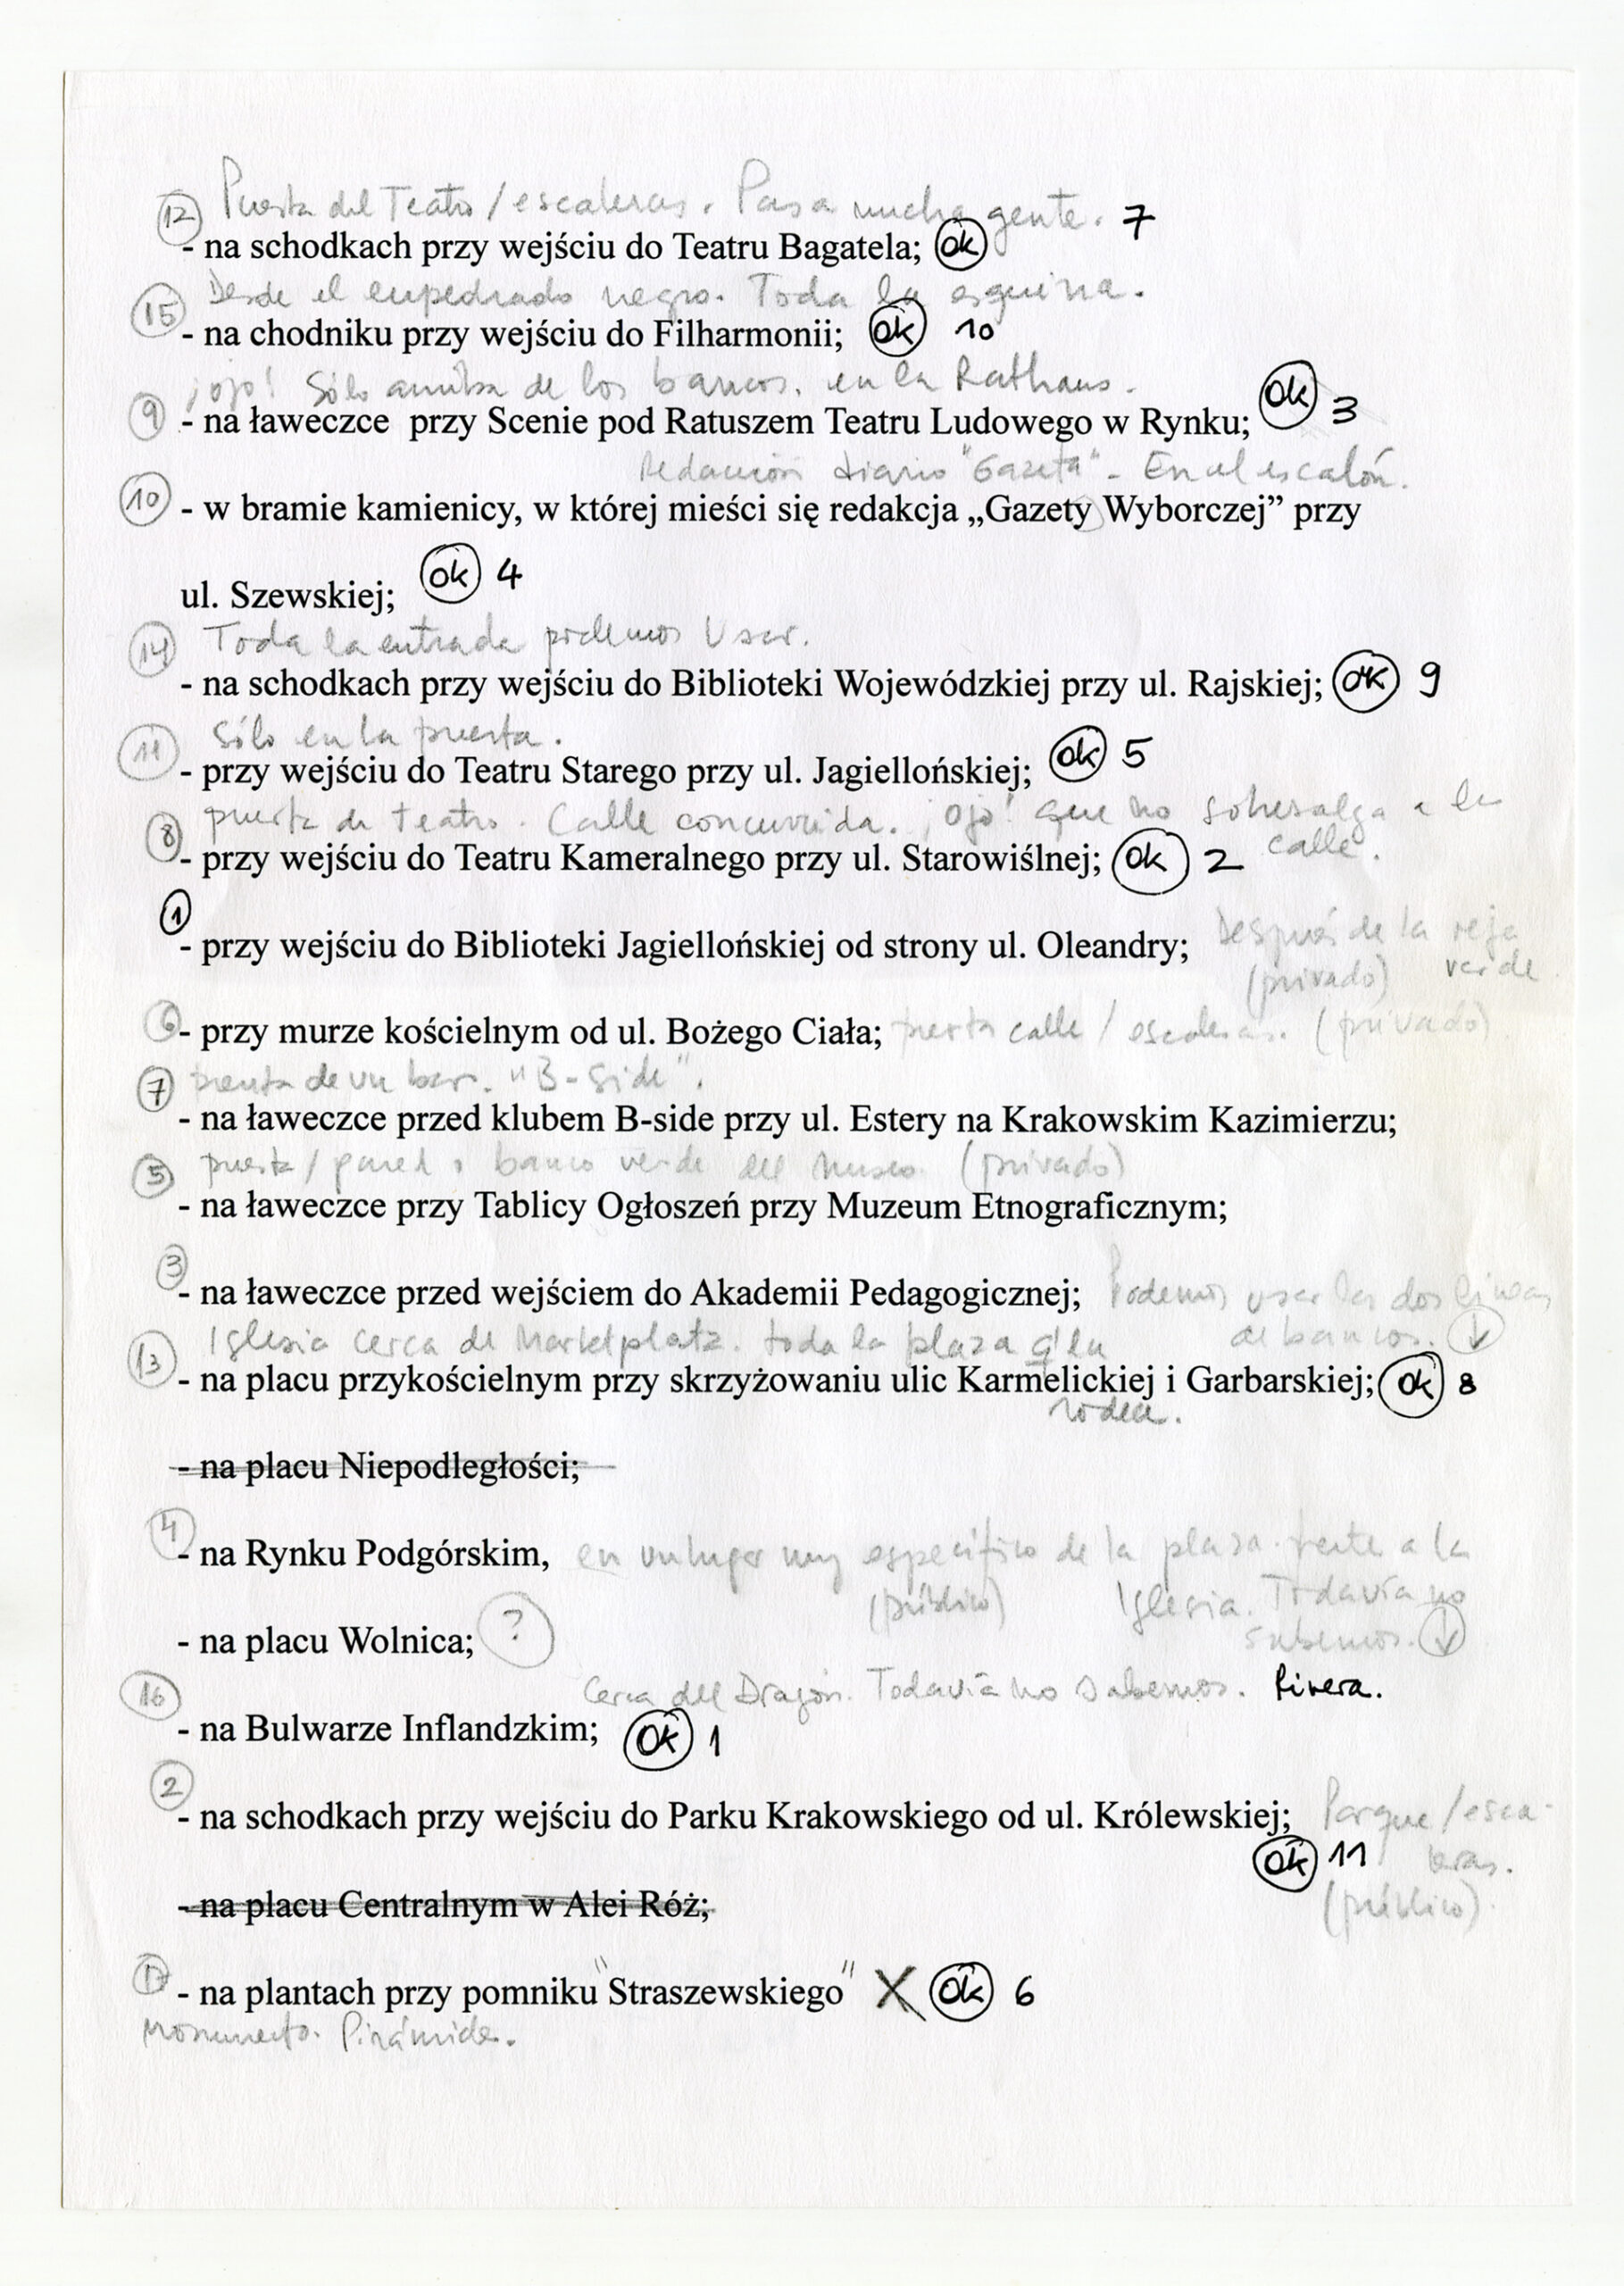 (12) Puerta del Teatro / escaleras. Pasa mucha gente. 7
- na schodkach przy wejściu do Teatru Bagatela; ok
(15) Desde el enpedrado negro. Toda la esquina.
- na chodniku przy wejściu do Filharmonii; ok 10
¡ojo! Sólo arriba de los bancos. en la Rathaus.
(9) - na ławeczce przy Scenie pod Ratuszem Teatru Ludowego w Rynku; ok 3
Redacción diario "Gazeta" - En el escalón.
(10) - w bramie kamienicy, w której mieści się redakcja „Gazety Wyborczej” przy
ul. Szewskiej; ok 4
(14) Toda la entrada podemos usar.
- na schodkach przy wejściu do Biblioteki Wojewódzkiej przy ul. Rajskiej; ok 9
(11) Sólo en la puerta.
- przy wejściu do Teatru Starego przy ul. Jagiellońskiej; ok 5
(8) puerta de teatro. Calle concurrida. ¡Ojo! que no sobresalga a la
- przy wejściu do Teatru Kameralnego przy ul. Starowiślnej; ok 2 calle.
(1)
- przy wejściu do Biblioteki Jagiellońskiej od strony ul. Oleandry; Después de la reja
(privado) verde
(6) - przy murze kościelnym od ul. Bożego Ciała; puerta calle / escaleras. (privado)
(7) puerta de un bar. "B-Side".
- na ławeczce przed klubem B-side przy ul. Estery na Krakowskim Kazimierzu;
(5) puerta / pared, banco verde del Museo (privado)
- na ławeczce przy Tablicy Ogłoszeń przy Muzeum Etnograficznym;
(3)
- na ławeczce przed wejściem do Akademii Pedagogicznej; Podemos usar las dos líneas
de bancos. ↓
(13) Iglesia cerca de Marketplatz. toda la plaza q' la
- na placu przykościelnym przy skrzyżowaniu ulic Karmelickiej i Garbarskiej; ok 8
rodea.
- na placu Niepodległości;
(4)
- na Rynku Podgórskim, en un lugar muy específico de la plaza. frente a la
(público) Iglesia. Todavía no
- na placu Wolnica; ? sabemos. ↓
(16) Cerca del Dragón. Todavía no sabemos. Rivera.
- na Bulwarze Inflandzkim; ok 1
(2)
- na schodkach przy wejściu do Parku Krakowskiego od ul. Królewskiej; Parque / esca-
ok 11 leras.
- na placu Centralnym w Alei Róż; (público).
(17) - na plantach przy pomniku "Straszewskiego" X ok 6
Monumento. Pirámide.